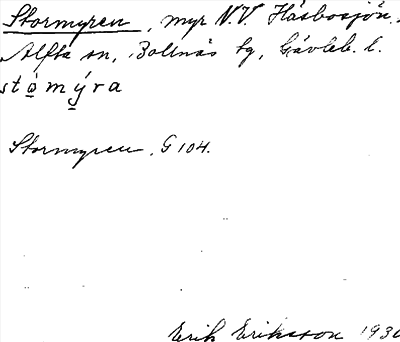 Stormyren, myr N.V. Håsbosjön,
Alfta sn, Bollnäs tg, Gävleb. l.
stòmýra
Stormyren, G 104.
Erik Eriksson 1930